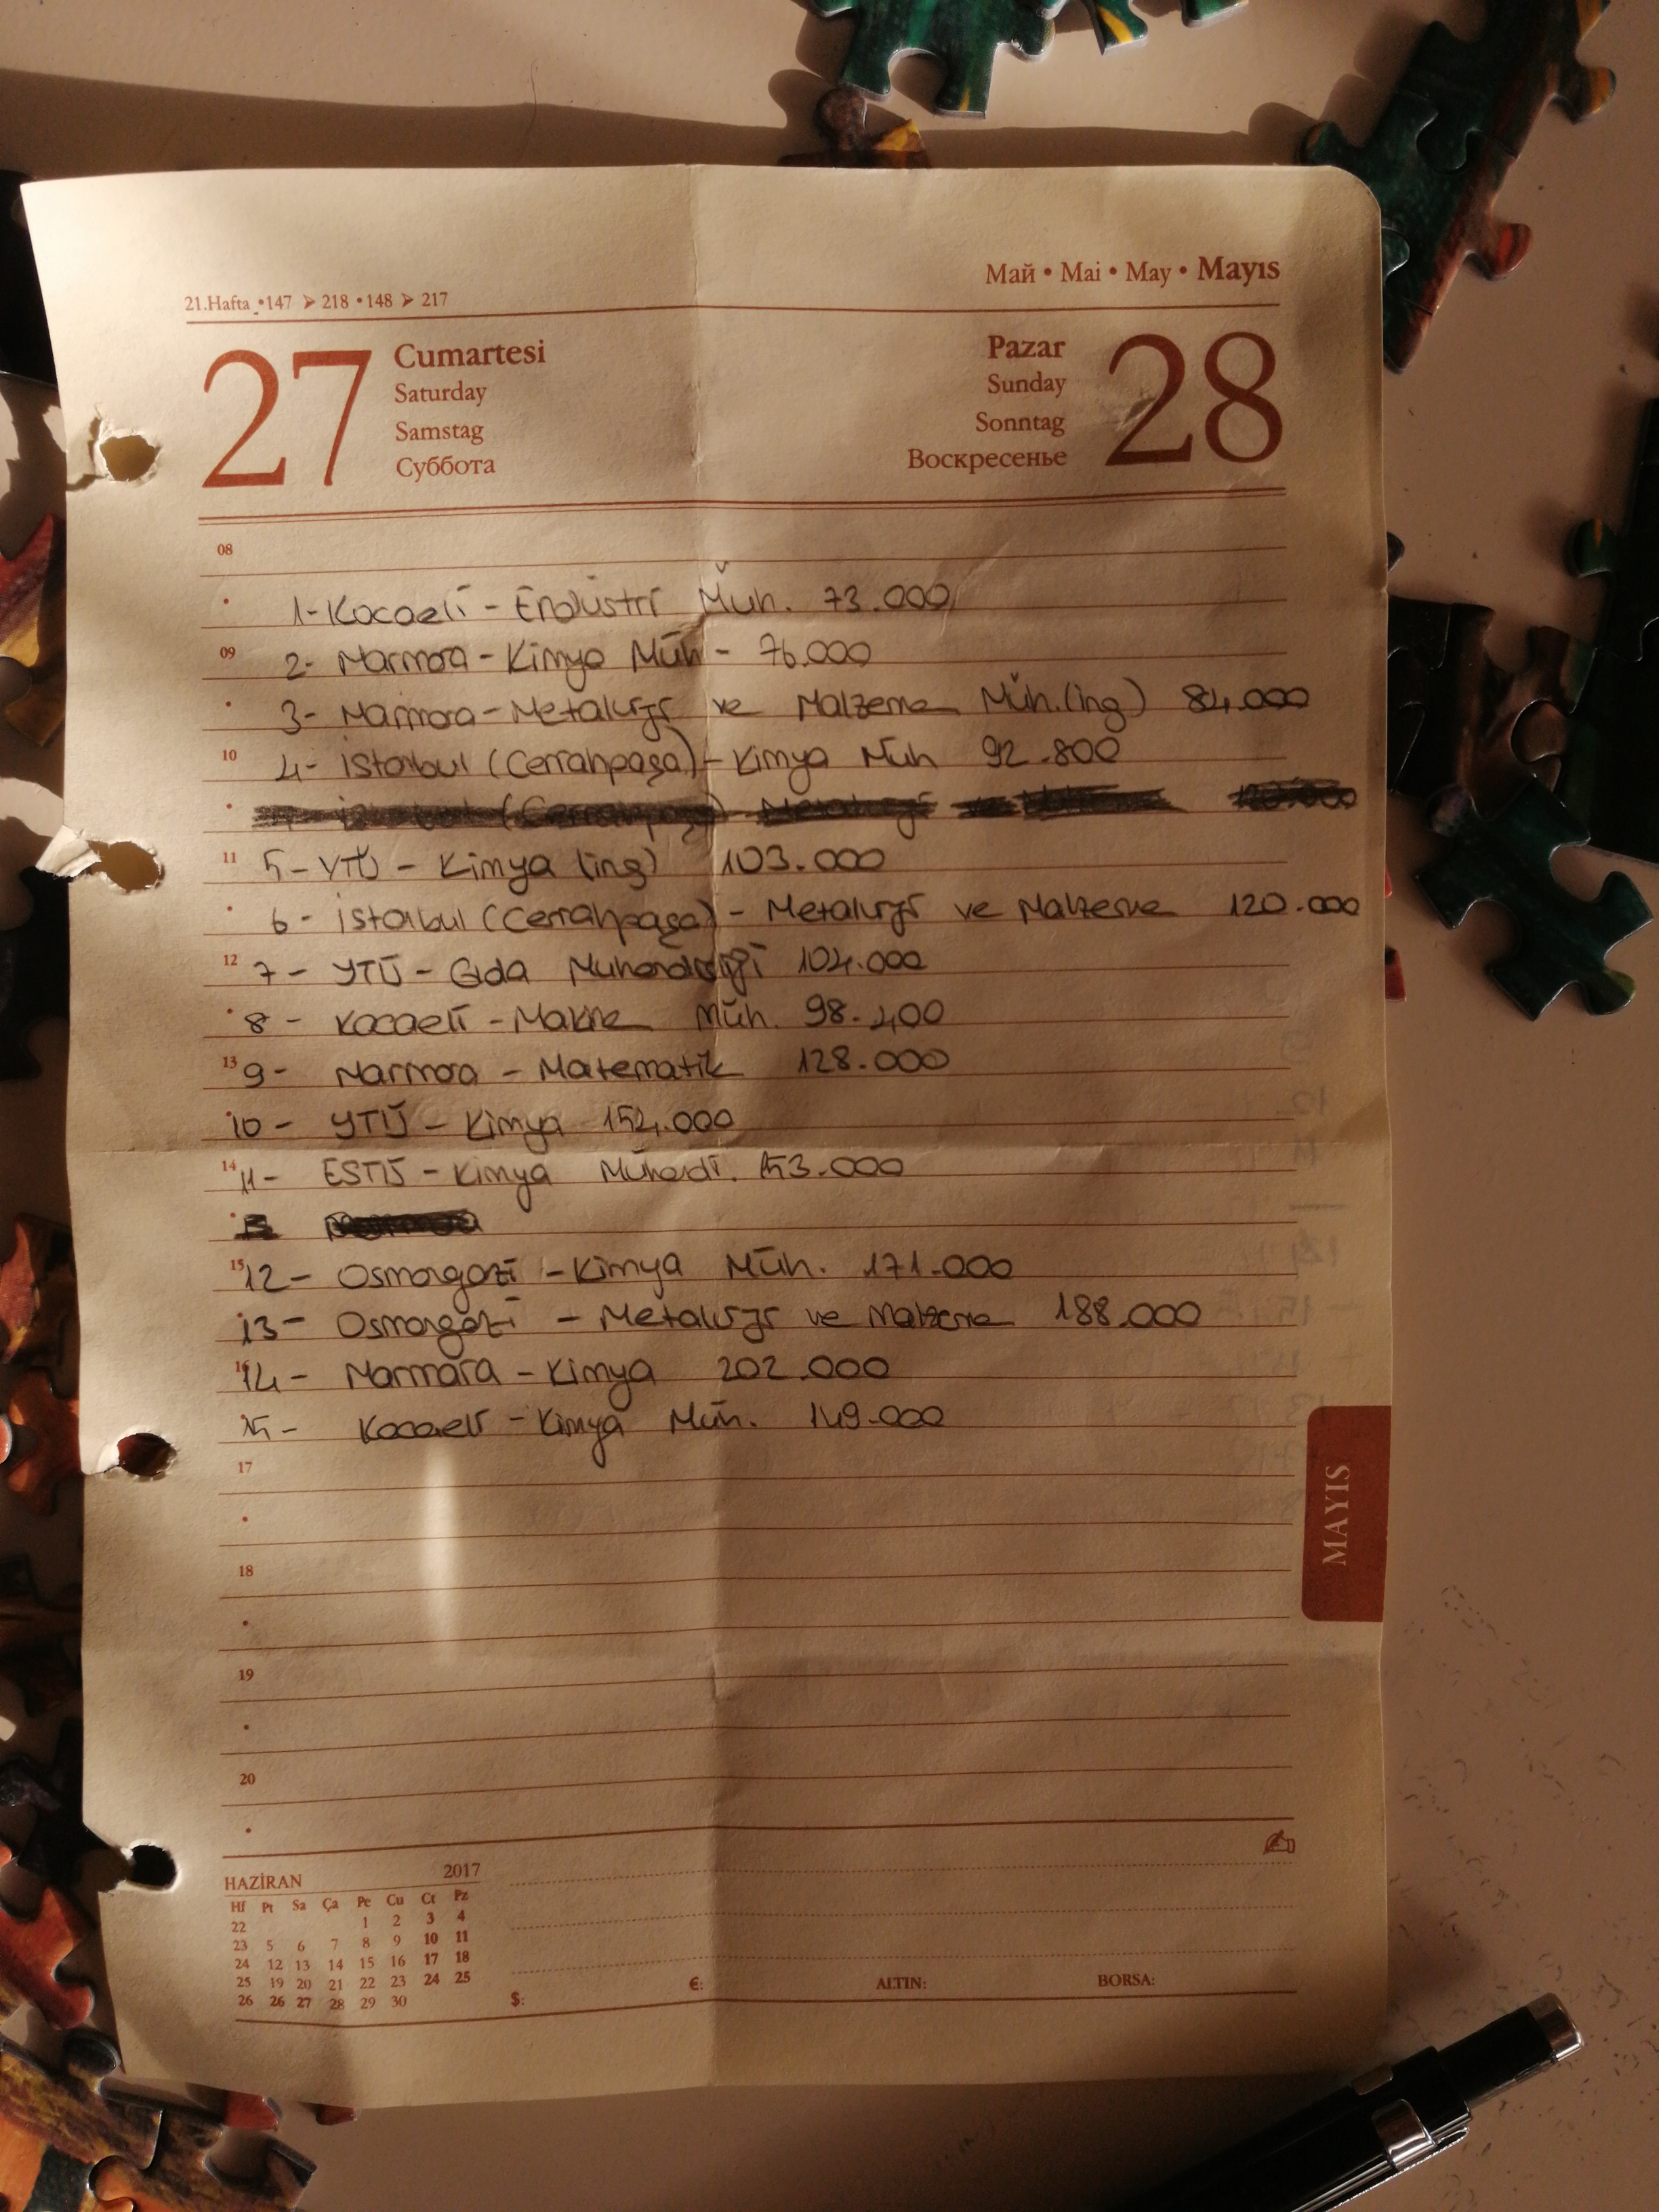 Май • Mai • May • Mayıs
21.Hafta •147 ➢ 218 •148 ➢ 217
27 Cumartesi
Saturday
Samstag
Суббота
Pazar 28
Sunday
Sonntag
Воскресенье
08
1- Kocaeli - Endüstri Müh. 73.000
09
2- Marmara - Kimya Müh - 76.000
3- Marmara - Metalurji ve Malzeme Müh.(ing) 84.000
10
4- istanbul (Cerrahpaşa) - Kimya Müh 92.800
11
5- YTÜ - Kimya (ing) 103.000
6- istanbul (Cerrahpaşa) - Metalurji ve Malzeme 120.000
12
7- YTÜ - Gıda Mühendisliği 104.000
8- Kocaeli - Makine Müh. 98.400
13
9- Marmara - Matematik 128.000
10- YTÜ - Kimya 154.000
14
11- ESTÜ - Kimya Mühendi. 153.000
15
12- Osmangazi - Kimya Müh. 171.000
13- Osmangazi - Metalurji ve Malzeme 188.000
16
14- Marmara - Kimya 202.000
15- Kocaeli - Kimya Müh. 149.000
17
MAYIS
18
19
20
HAZİRAN 2017
Hf Pt Sa Ça Pe Cu Ct Pz
22 1 2 3 4
23 5 6 7 8 9 10 11
24 12 13 14 15 16 17 18
25 19 20 21 22 23 24 25
26 26 27 28 29 30
$: €: ALTIN: BORSA: